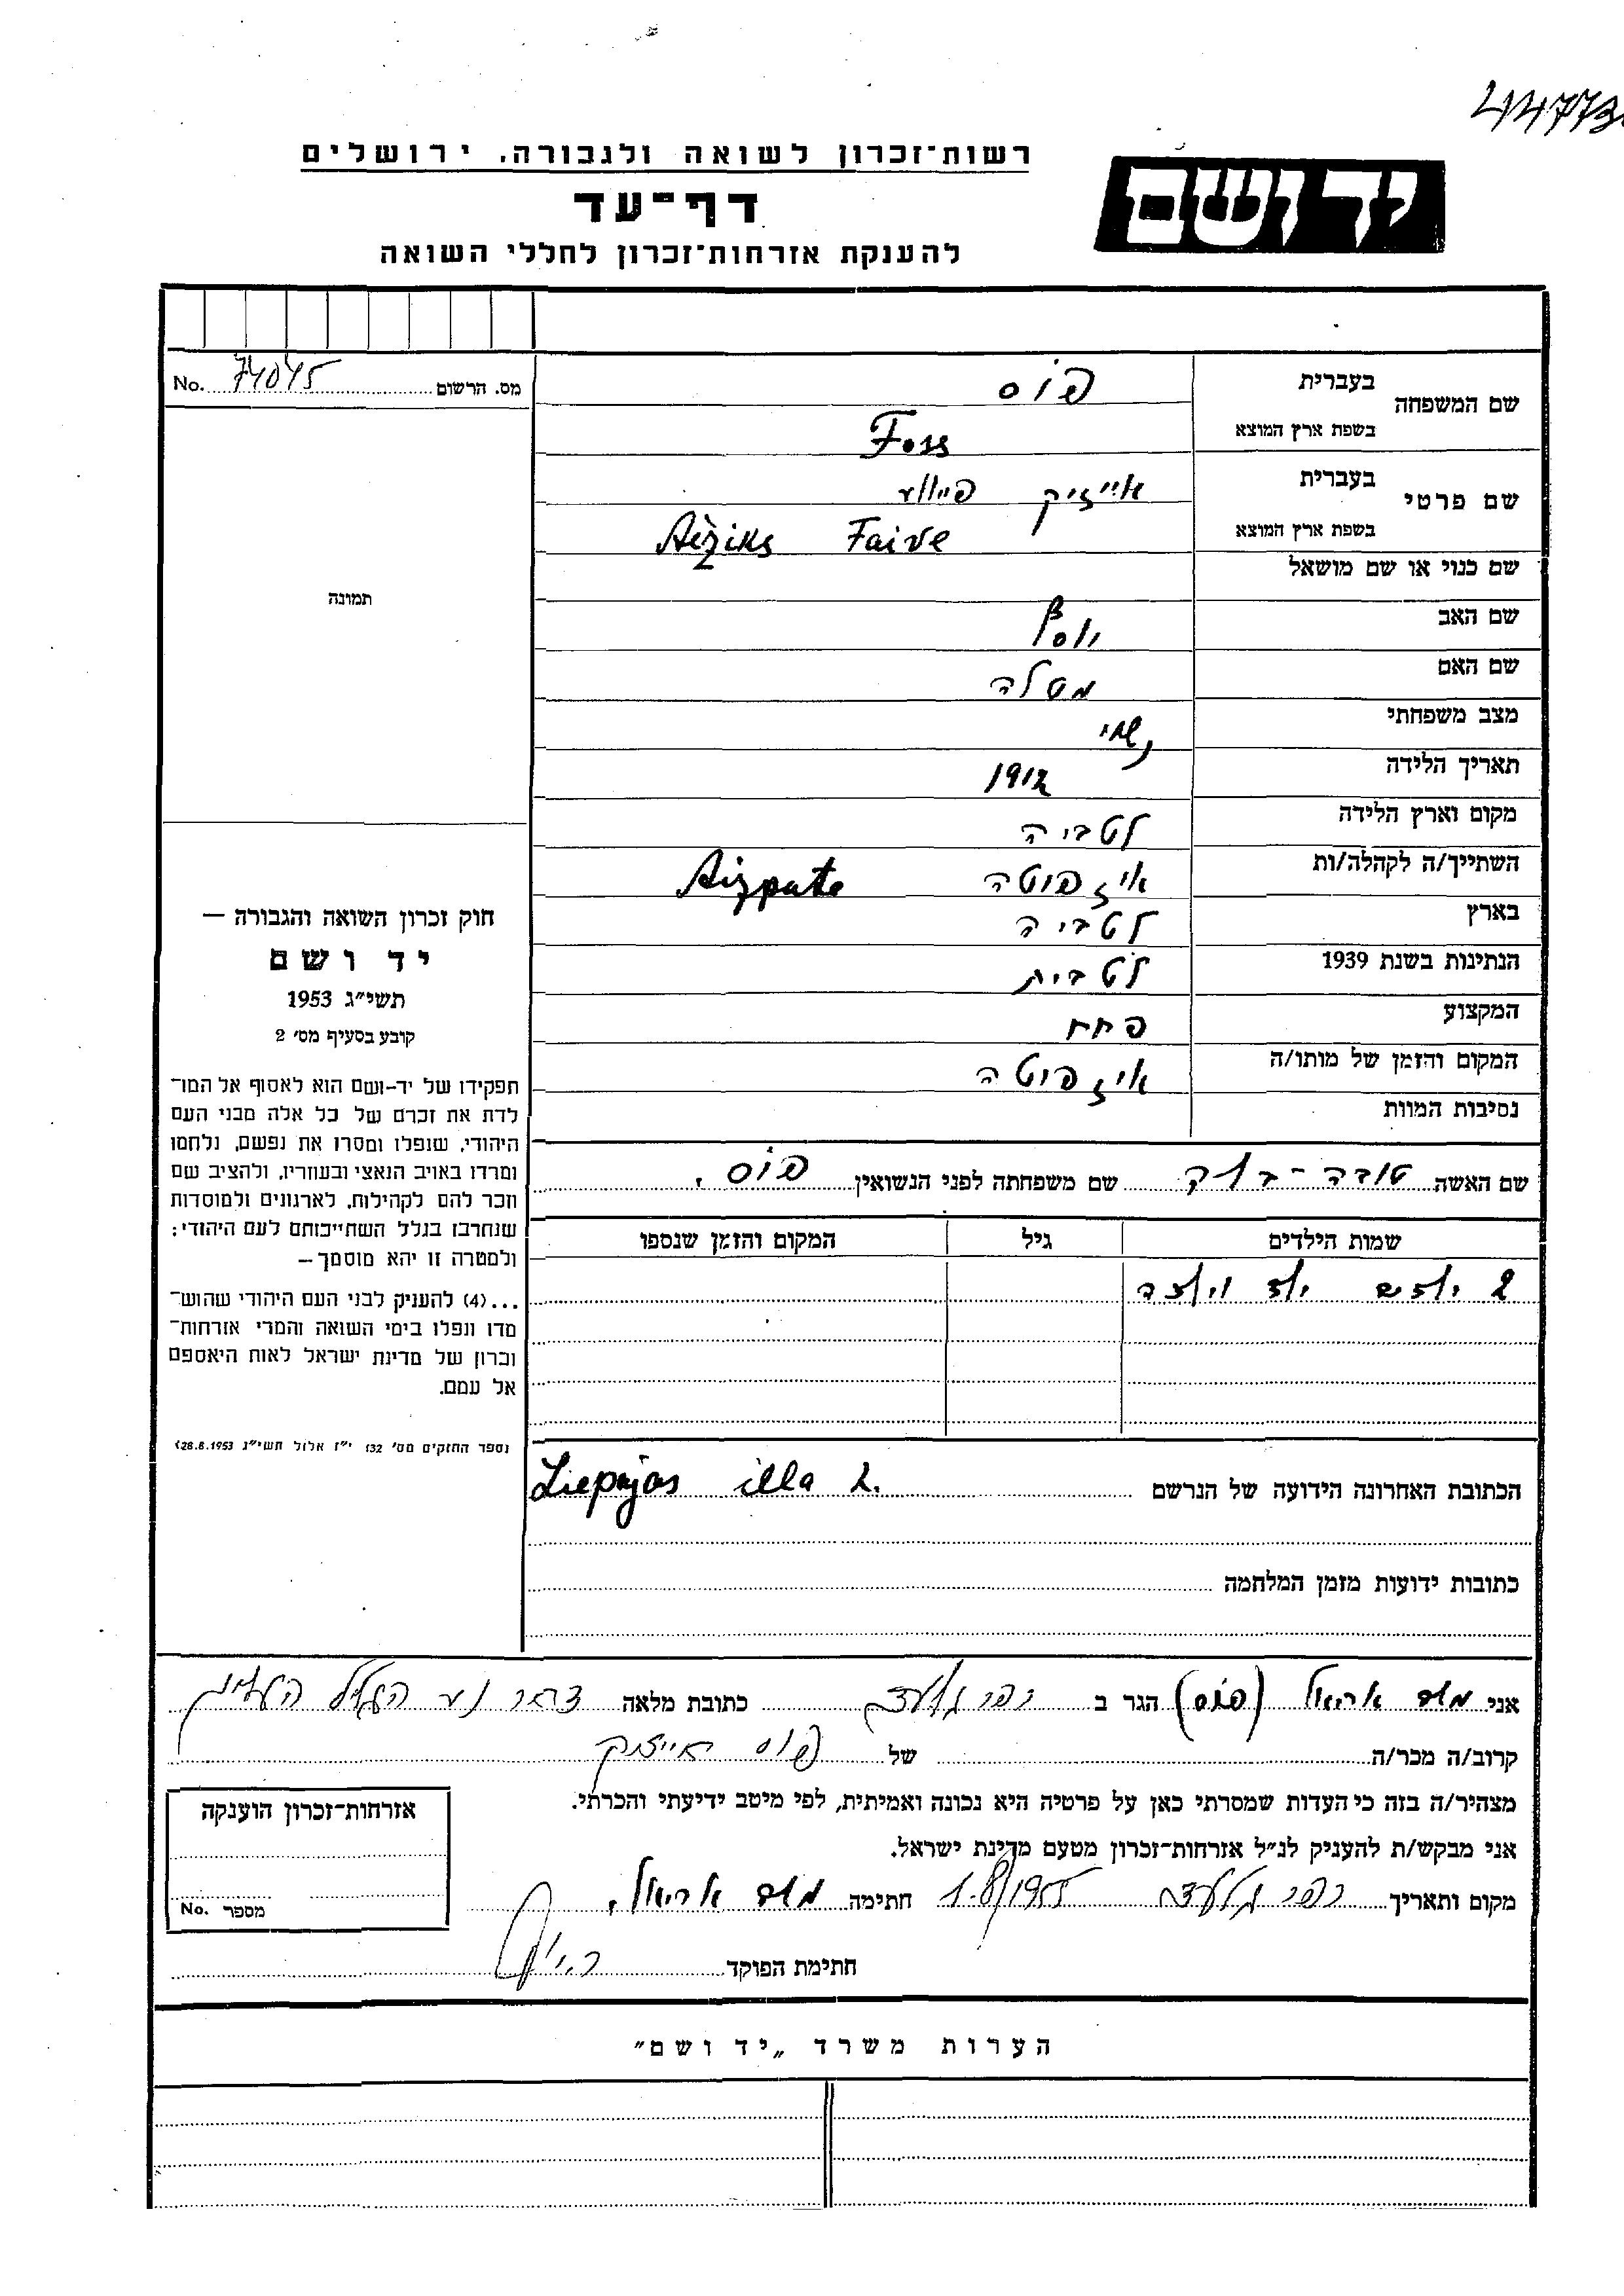 44773
רשות־זכרון לשואה ולגבורה. ירושלים
יד ושם
דף־עד
להענקת אזרחות־זכרון לחללי השואה
מס. הרשום 74045 No.
תמונה
שם המשפחה
בעברית פוס
בשפת ארץ המוצא Foss
שם פרטי
בעברית אייזיק
בשפת ארץ המוצא Aiziks Faive
שם כנוי או שם מושאל
שם האב יוסף
שם האם מטלה
מצב משפחתי נשוי
תאריך הלידה 1912
מקום וארץ הלידה לטביה
השתייך/ה לקהלה/ות איזפוטה Aizpute
בארץ לטביה
הנתינות בשנת 1939 לטבית
המקצוע פחח
המקום והזמן של מותו/ה איזפוטה
נסיבות המוות
חוק זכרון השואה והגבורה —
יד ושם
תשי״ג 1953
קובע בסעיף מס׳ 2
תפקידו של יד-ושם הוא לאסוף אל המו־
לדת את זכרם של כל אלה מבני העם
היהודי, שנפלו ומסרו את נפשם, נלחמו
ומרדו באויב הנאצי ובעוזריו, ולהציב שם
וזכר להם לקהילות, לארגונים ולמוסדות
שנחרבו בגלל השתייכותם לעם היהודי;
ולמטרה זו יהא מוסמך—
...(4) להעניק לבני העם היהודי שהוש־
מדו ונפלו בימי השואה והמרי אזרחות־
זכרון של מדינת ישראל לאות היאספם
אל עמם.
(ספר החוקים מס׳ 132 י״ז אלול תשי״ג 28.8.1953)
שם האשה טובה- שם משפחתה לפני הנשואין פוס.
שמות הילדים גיל המקום והזמן שנספו
2 ילדים ילד וילדה
הכתובת האחרונה הידועה של הנרשם Liepajas illa 2.
כתובות ידועות מזמן המלחמה
אני אריאל (פוס) הגר ב כפר גלעדי כתובת מלאה דאר נע הגליל העליון
קרוב/ה מכר/ה של פוס אייזיק
מצהיר/ה בזה כי העדות שמסרתי כאן על פרטיה היא נכונה ואמיתית, לפי מיטב ידיעתי והכרתי.
אני מבקש/ת להעניק לנ״ל אזרחות־זכרון מטעם מדינת ישראל.
מקום ותאריך כפר גלעדי 1.8/1955 חתימה אריאל.
חתימת הפוקד
אזרחות־זכרון הוענקה
מספר No.
הערות משרד „יד ושם״